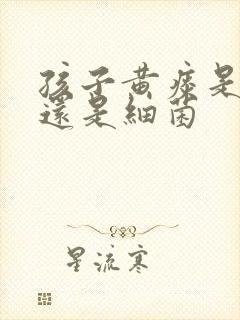 孩子黄疸是
還是細菌
星流寒